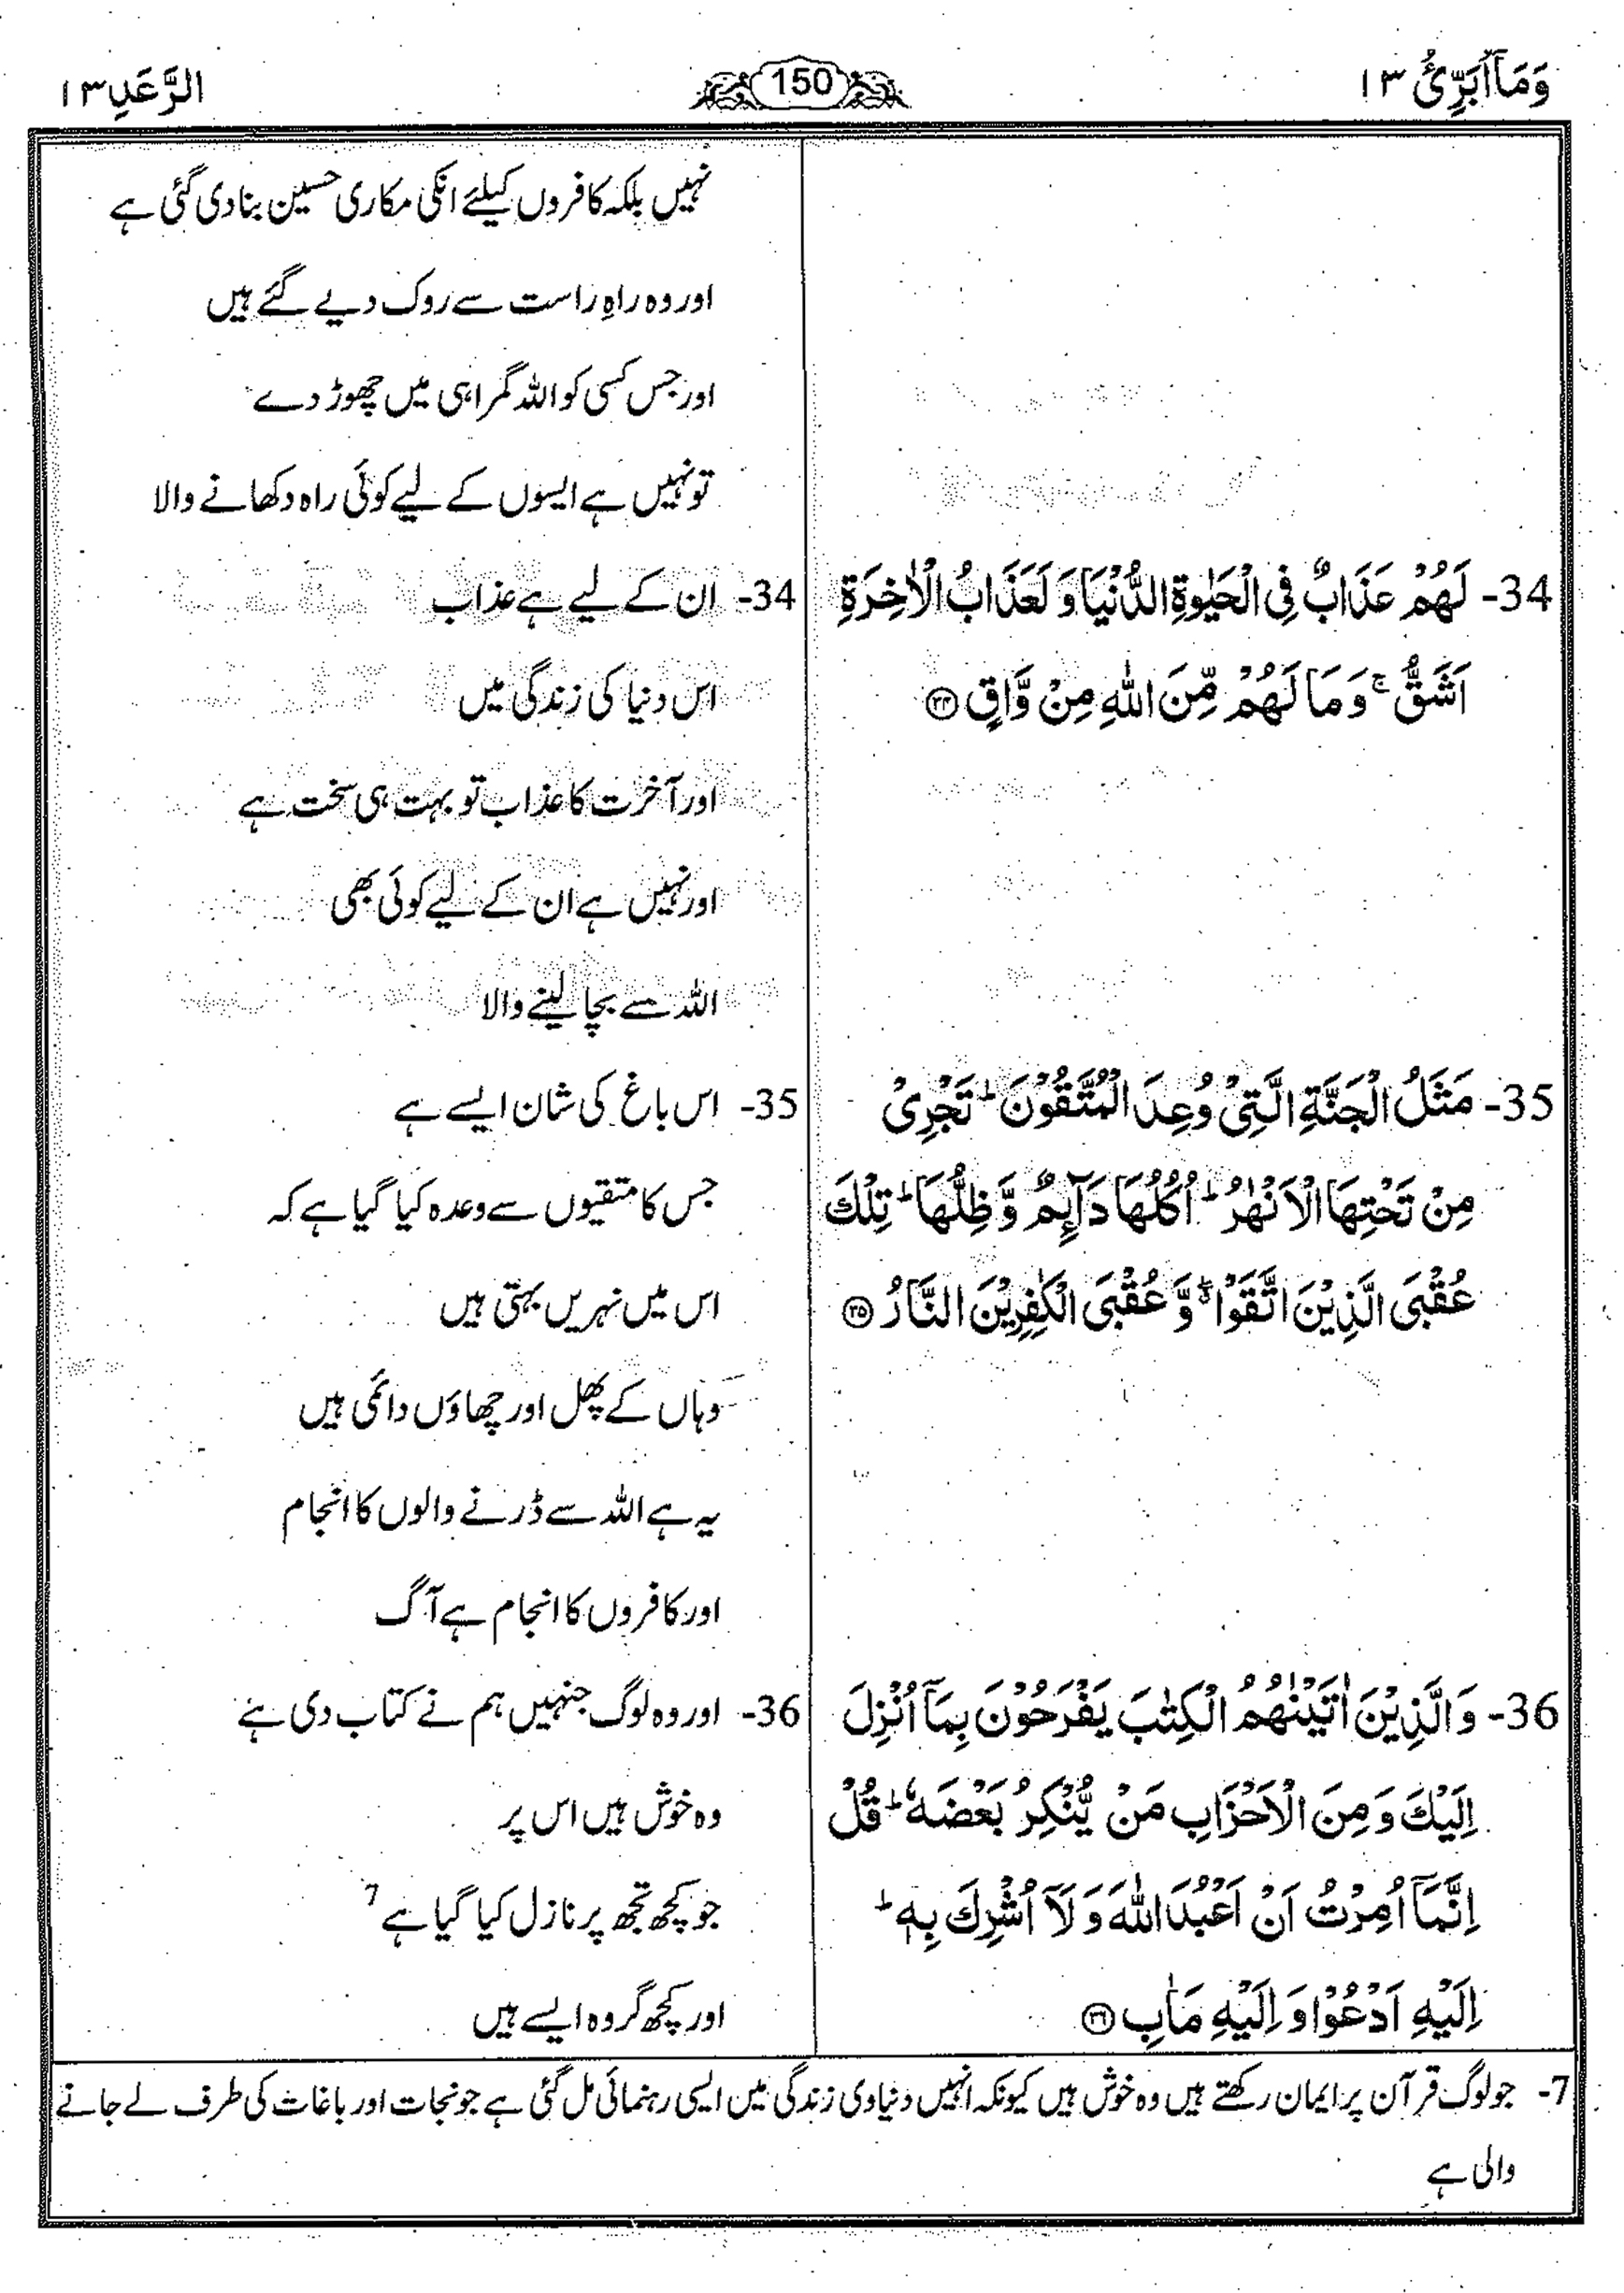 وَمَآ اُبَرِّئُ ۱۳
150
الرَّعَدِ ۱۳
نہیں بلکہ کافروں کیلئے انکی مکاری حسین بنا دی گئی ہے
اور وہ راہِ راست سے روک دیے گئے ہیں
اور جس کسی کو اللہ گمراہی میں چھوڑ دے
تو نہیں ہے ایسوں کے لیے کوئی راہ دکھانے والا
34- لَهُمْ عَذَابٌ فِی الْحَیٰوةِ الدُّنْیَا وَ لَعَذَابُ الْاٰخِرَةِ
اَشَقُّ ۚ وَ مَا لَهُمْ مِّنَ اللّٰهِ مِنْ وَّاقٍ ۝۳۴
34- ان کے لیے ہے عذاب
اس دنیا کی زندگی میں
اور آخرت کا عذاب تو بہت ہی سخت ہے
اور نہیں ہے ان کے لیے کوئی بھی
اللہ سے بچا لینے والا
35- مَثَلُ الْجَنَّةِ الَّتِیْ وُعِدَ الْمُتَّقُوْنَ ؕ تَجْرِیْ
مِنْ تَحْتِهَا الْاَنْهٰرُ ؕ اُكُلُهَا دَآىِٕمٌ وَّ ظِلُّهَا ؕ تِلْكَ
عُقْبَی الَّذِیْنَ اتَّقَوْا ۖۗ وَّ عُقْبَی الْكٰفِرِیْنَ النَّارُ ۝۳۵
35- اس باغ کی شان ایسے ہے
جس کا متقیوں سے وعدہ کیا گیا ہے کہ
اس میں نہریں بہتی ہیں
وہاں کے پھل اور چھاؤں دائمی ہیں
یہ ہے اللہ سے ڈرنے والوں کا انجام
اور کافروں کا انجام ہے آگ
36- وَ الَّذِیْنَ اٰتَیْنٰهُمُ الْكِتٰبَ یَفْرَحُوْنَ بِمَاۤ اُنْزِلَ
اِلَیْكَ وَ مِنَ الْاَحْزَابِ مَنْ یُّنْكِرُ بَعْضَهٗ ؕ قُلْ
اِنَّمَاۤ اُمِرْتُ اَنْ اَعْبُدَ اللّٰهَ وَ لَاۤ اُشْرِكَ بِهٖ ؕ
اِلَیْهِ اَدْعُوْا وَ اِلَیْهِ مَاٰبِ ۝۳۶
36- اور وہ لوگ جنہیں ہم نے کتاب دی ہے
وہ خوش ہیں اس پر
جو کچھ تجھ پر نازل کیا گیا ہے 7
اور کچھ گروہ ایسے ہیں
7- جو لوگ قرآن پر ایمان رکھتے ہیں وہ خوش ہیں کیونکہ انہیں دنیاوی زندگی میں ایسی رہنمائی مل گئی ہے جو نجات اور باغات کی طرف لے جانے
والی ہے